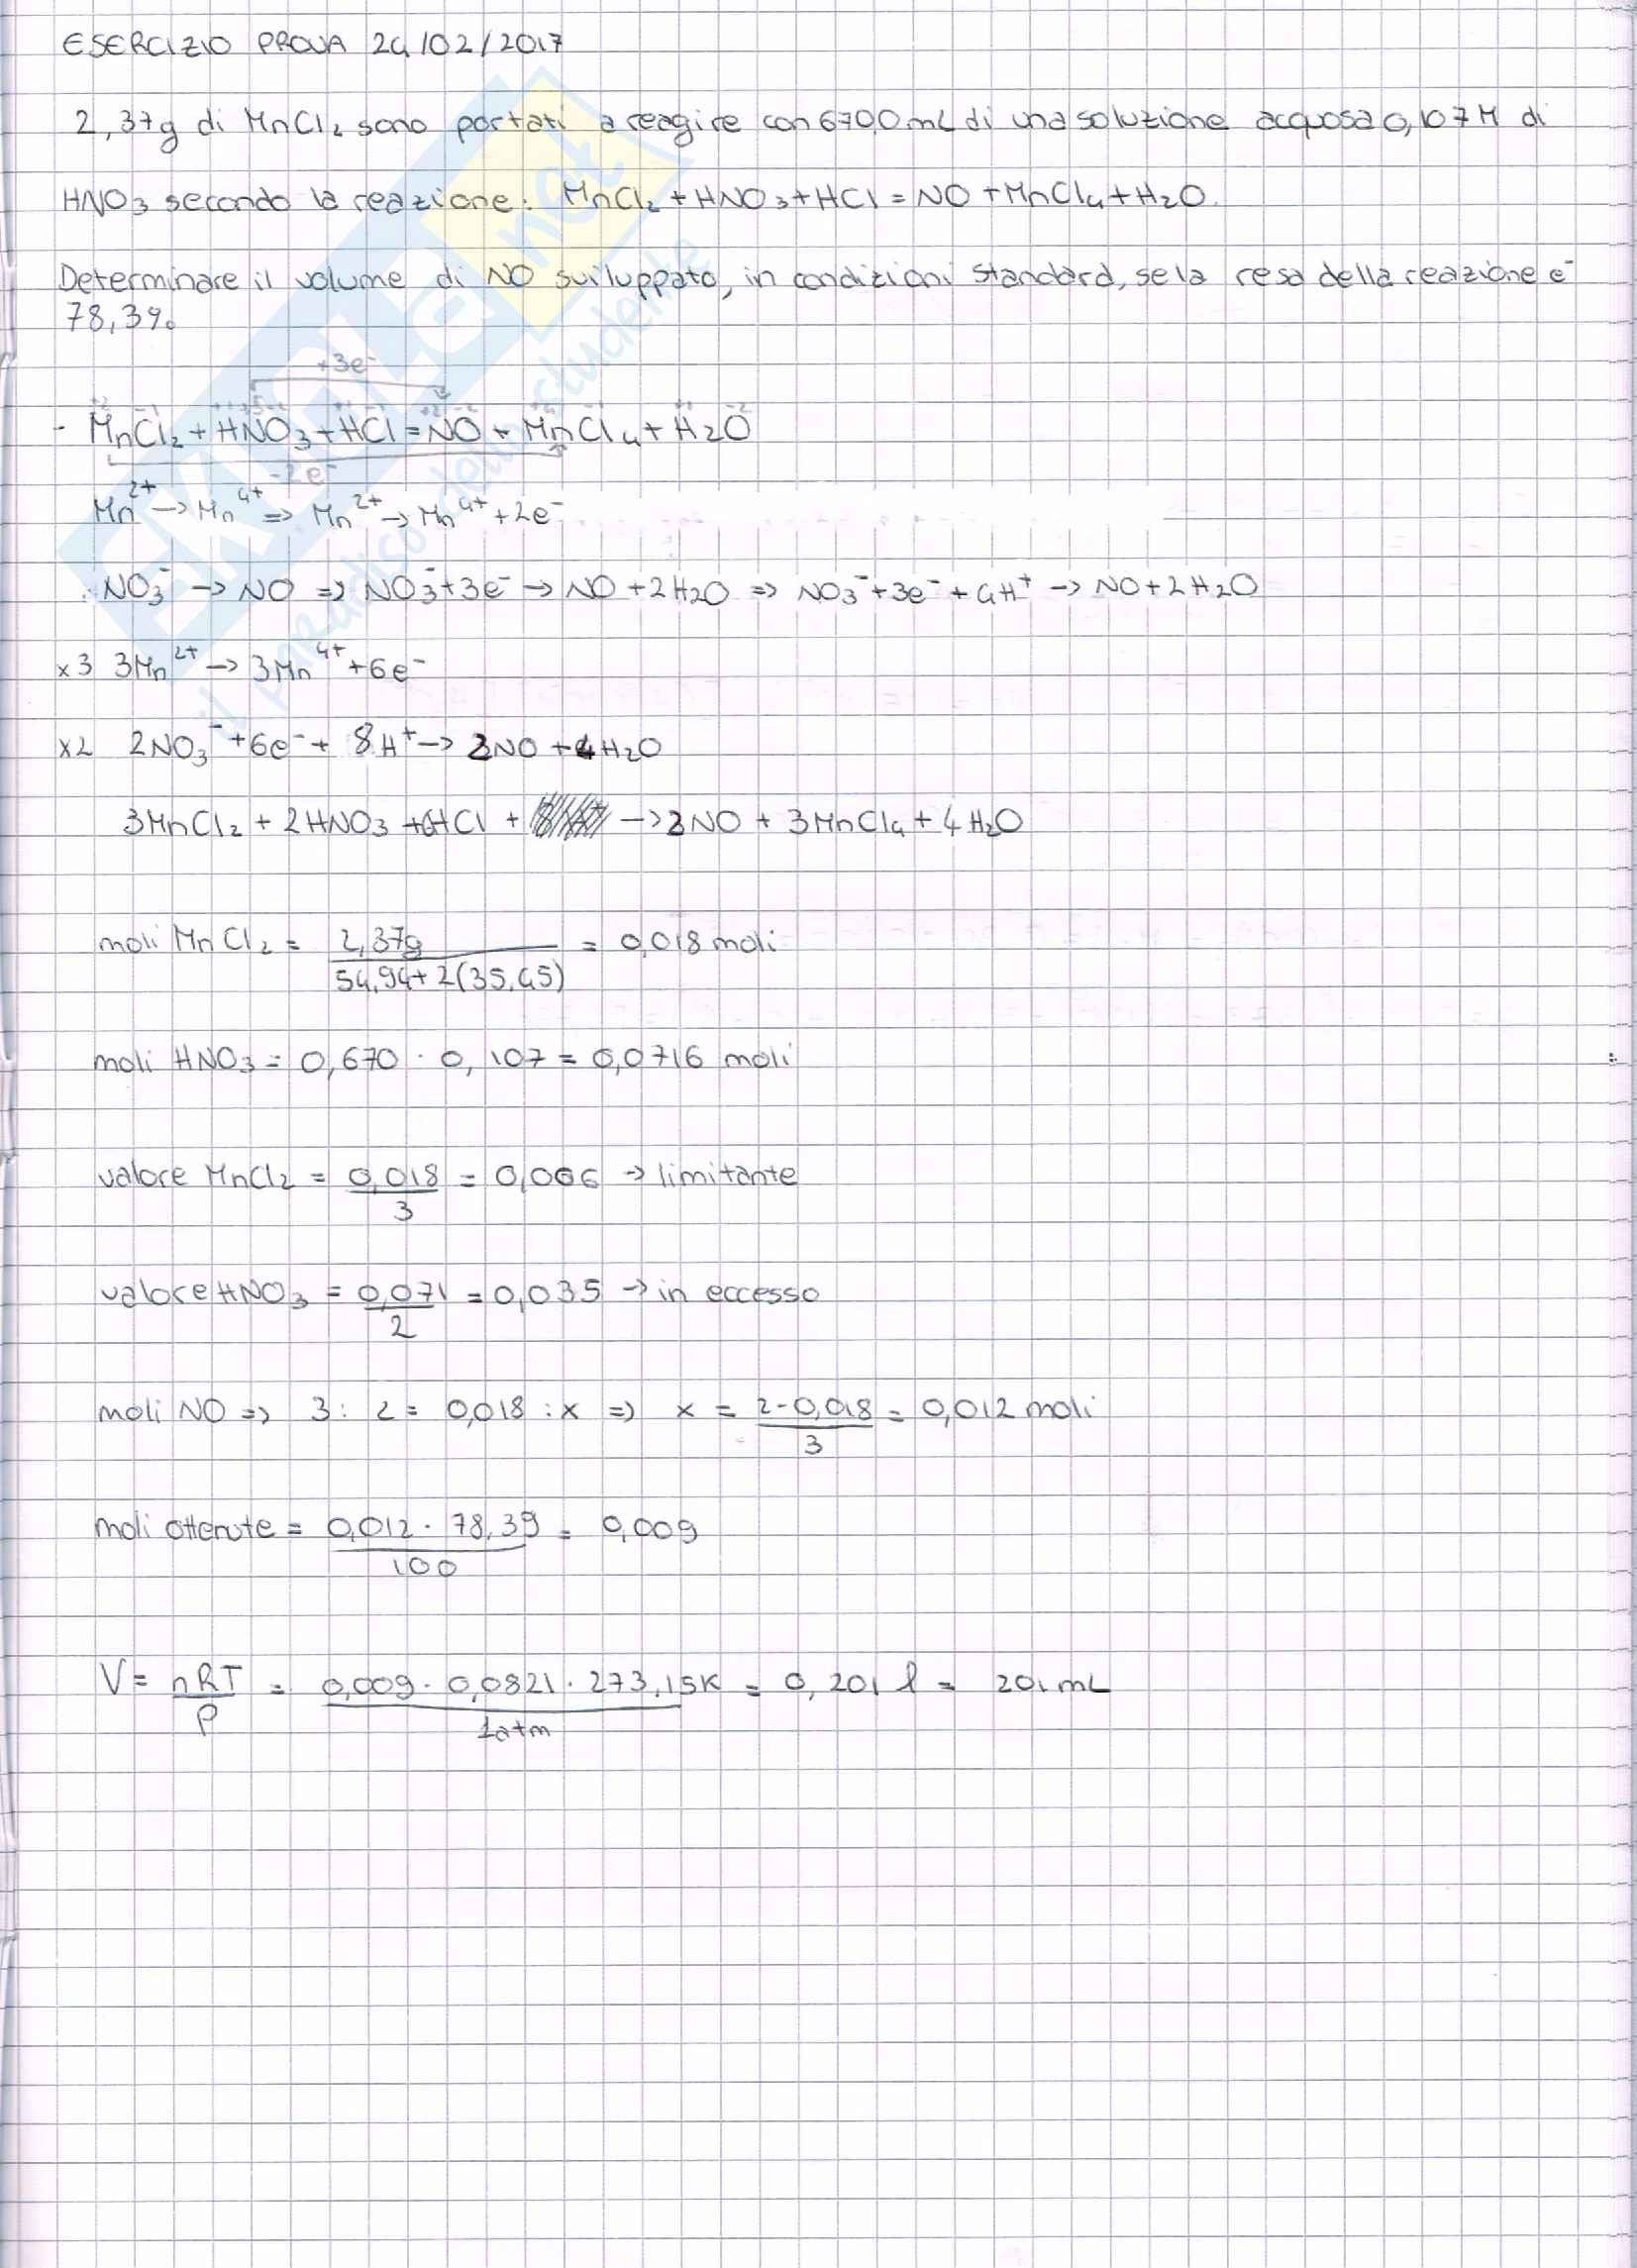 ESERCIZIO PROVA 24/02/2017
2,37g di MnCl₂ sono portati a reagire con 670,0 mL di una soluzione acquosa 0,107 M di
HNO₃ secondo la reazione: MnCl₂ + HNO₃ + HCl = NO + MnCl₄ + H₂O.
Determinare il volume di NO sviluppato, in condizioni standard, se la resa della reazione è
78,3%.
+3e⁻
+2 -1 +1 +5 -2 +1 -1 +2 -2 +4 -1 +1 -2
- MnCl₂ + HNO₃ + HCl = NO + MnCl₄ + H₂O
-2e⁻
Mn²⁺ → Mn⁴⁺ => Mn²⁺ → Mn⁴⁺ + 2e⁻
NO₃⁻ → NO => NO₃⁻ + 3e⁻ → NO + 2H₂O => NO₃⁻ + 3e⁻ + 4H⁺ → NO + 2H₂O
x3 3Mn²⁺ → 3Mn⁴⁺ + 6e⁻
x2 2NO₃⁻ + 6e⁻ + 8H⁺ → 2NO + 4H₂O
3MnCl₂ + 2HNO₃ + 6HCl + → 2NO + 3MnCl₄ + 4H₂O
moli MnCl₂ = 2,37g / 54,94 + 2(35,45) = 0,018 moli
moli HNO₃ = 0,670 · 0,107 = 0,0716 moli
valore MnCl₂ = 0,018 / 3 = 0,006 → limitante
valore HNO₃ = 0,071 / 2 = 0,035 → in eccesso
moli NO => 3 : 2 = 0,018 : x => x = 2 · 0,018 / 3 = 0,012 moli
moli ottenute = 0,012 · 78,39 / 100 = 0,009
V = nRT / P = 0,009 · 0,0821 · 273,15K / 1atm = 0,201 l = 201 mL
SKUOLA.net
il paradiso dello studente